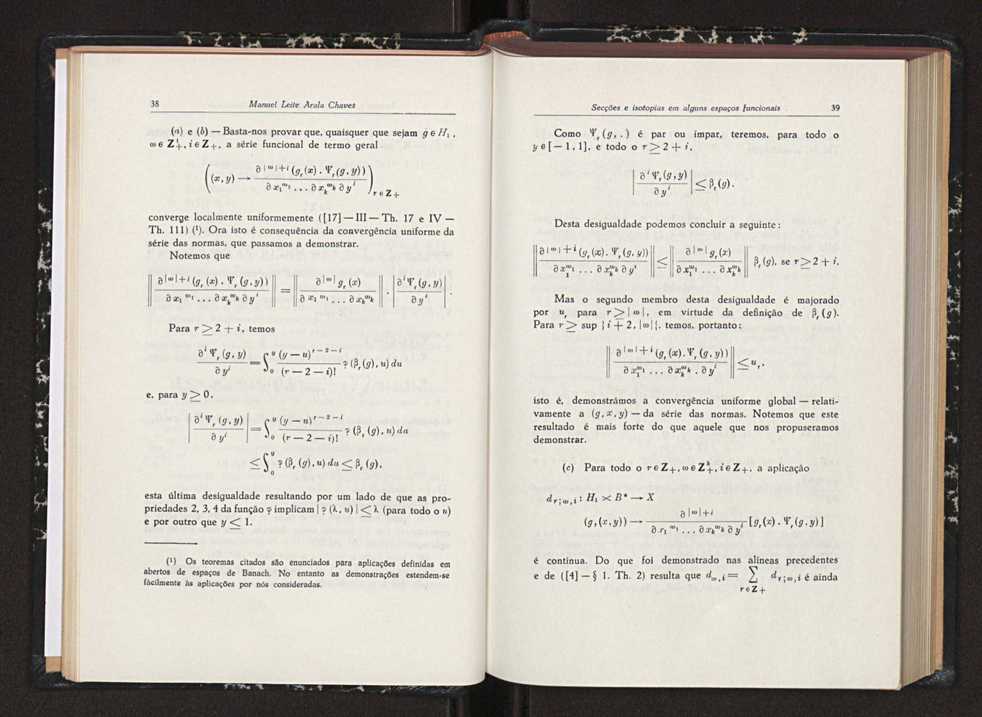 38 Manuel Leite Arala Chaves
(a) e (b) — Basta-nos provar que, quaisquer que sejam g ∈ H₁ ,
ω ∈ Z₊ᵏ, i ∈ Z₊, a série funcional de termo geral
( (x, y) → ∂^{|ω|+i} (g_r(x) . Ψ_r(g, y)) / ∂x₁^{ω₁} . . . ∂x_k^{ω_k} ∂y^i )_{r ∈ Z₊}
converge localmente uniformemente ([17] — III — Th. 17 e IV —
Th. 111) (¹). Ora isto é consequência da convergência uniforme da
série das normas, que passamos a demonstrar.
Notemos que
‖ ∂^{|ω|+i} (g_r(x) . Ψ_r(g, y)) / ∂x₁^{ω₁} . . . ∂x_k^{ω_k} ∂y^i ‖ = ‖ ∂^{|ω|} g_r(x) / ∂x₁^{ω₁} . . . ∂x_k^{ω_k} ‖ . | ∂^i Ψ_r(g, y) / ∂y^i | .
Para r ≥ 2 + i, temos
∂^i Ψ_r(g, y) / ∂y^i = ∫₀^y (y — u)^{r—2—i} / (r — 2 — i)! φ(β_r(g), u) du
e, para y ≥ 0,
| ∂^i Ψ_r(g, y) / ∂y^i | = ∫₀^y (y — u)^{r—2—i} / (r — 2 — i)! φ(β_r(g), u) du
≤ ∫₀^y φ(β_r(g), u) du ≤ β_r(g),
esta última desigualdade resultando por um lado de que as pro-
priedades 2, 3, 4 da função φ implicam | φ(λ, u) | ≤ λ (para todo o u)
e por outro que y ≤ 1.
(¹) Os teoremas citados são enunciados para aplicações definidas em
abertos de espaços de Banach. No entanto as demonstrações estendem-se
fàcilmente às aplicações por nós consideradas.
Secções e isotopias em alguns espaços funcionais 39
Como Ψ_r(g, .) é par ou impar, teremos, para todo o
y ∈ [— 1, 1], e todo o r ≥ 2 + i,
| ∂^i Ψ_r(g, y) / ∂y^i | ≤ β_r(g).
Desta desigualdade podemos concluir a seguinte:
‖ ∂^{|ω|+i} (g_r(x) . Ψ_r(g, y)) / ∂x₁^{ω₁} . . . ∂x_k^{ω_k} ∂y^i ‖ ≤ ‖ ∂^{|ω|} g_r(x) / ∂x₁^{ω₁} . . . ∂x_k^{ω_k} ‖ β_r(g), se r ≥ 2 + i.
Mas o segundo membro desta desigualdade é majorado
por u_r para r ≥ | ω |, em virtude da definição de β_r(g).
Para r ≥ sup { i + 2, |ω| }, temos, portanto:
‖ ∂^{|ω|+i} (g_r(x) . Ψ_r(g, y)) / ∂x₁^{ω₁} . . . ∂x_k^{ω_k} . ∂y^i ‖ ≤ u_r,
isto é, demonstrámos a convergência uniforme global — relati-
vamente a (g, x, y) — da série das normas. Notemos que este
resultado é mais forte do que aquele que nos propuseramos
demonstrar.
(c) Para todo o r ∈ Z₊, ω ∈ Z₊ᵏ, i ∈ Z₊, a aplicação
d_{r;ω,i} : H₁ × B* → X
(g, (x, y)) → ∂^{|ω|+i} / ∂x₁^{ω₁} . . . ∂x_k^{ω_k} ∂y^i [g_r(x) . Ψ_r(g, y)]
é continua. Do que foi demonstrado nas alíneas precedentes
e de ([4] — § 1. Th. 2) resulta que d_{ω,i} = ∑_{r ∈ Z₊} d_{r;ω,i} é ainda